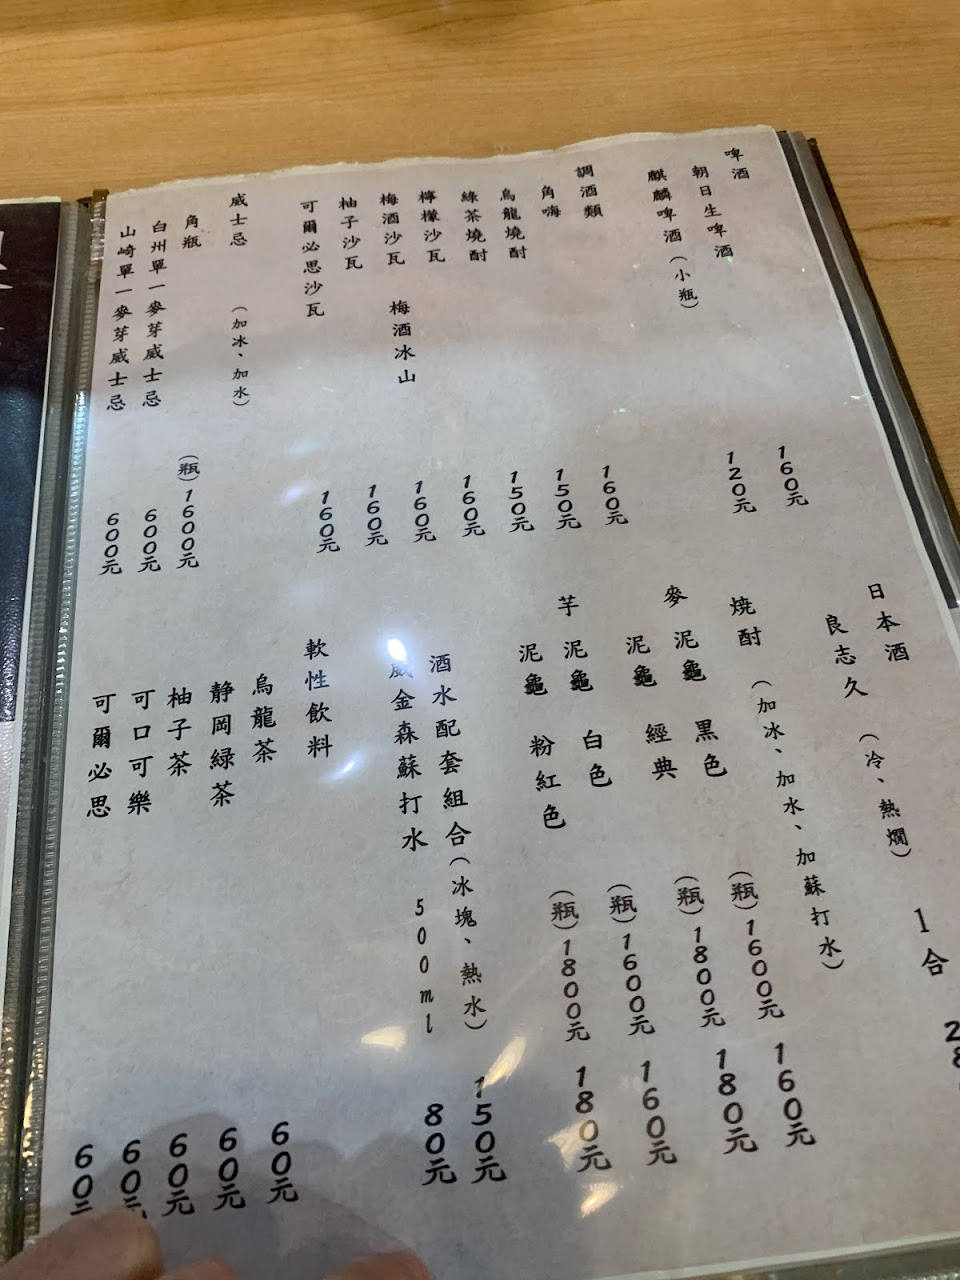 啤酒
朝日生啤酒 160元
麒麟啤酒(小瓶) 120元
調酒類
角嗨 160元
烏龍燒酎 150元
綠茶燒酎 150元
檸檬沙瓦 160元
梅酒沙瓦 梅酒冰山 160元
柚子沙瓦 160元
可爾必思沙瓦 160元
威士忌 (加冰、加水)
角瓶 (瓶)1600元
白州單一麥芽威士忌 600元
山崎單一麥芽威士忌 600元
日本酒
良志久 (冷、熱燗) 1合
燒酎 (加冰、加水、加蘇打水)
麥 泥龜 黑色 (瓶)1600元 160元
泥龜 經典 (瓶)1800元 180元
芋 泥龜 白色 (瓶)1600元 160元
泥龜 粉紅色 (瓶)1800元 180元
酒水配套組合(冰塊、熱水) 150元
威金森蘇打水 500ml 80元
軟性飲料
烏龍茶 60元
静岡緑茶 60元
柚子茶 60元
可口可樂 60元
可爾必思 60元